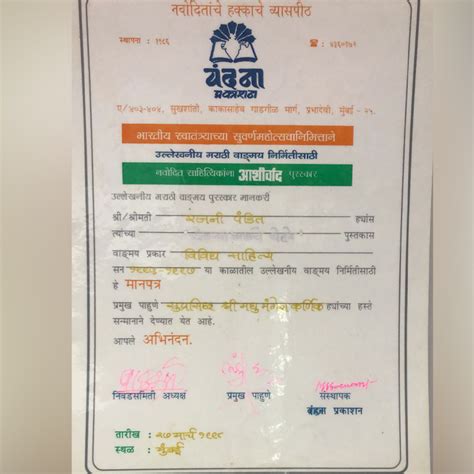 नवोदितांचे हक्काचे व्यासपीठ
स्थापना : १९८६
☎ : ४३६०१७२
वंदना
प्रकाशन
ए/४०३-४०४, सुखशांती, काकासाहेब गाडगीळ मार्ग, प्रभादेवी, मुंबई - २५.
भारतीय स्वातंत्र्याच्या सुवर्णमहोत्सवानिमित्ताने
उल्लेखनीय मराठी वाङ्मय निर्मितीसाठी
नवोदित साहित्यिकांना आशीर्वाद पुरस्कार
उल्लेखनीय मराठी वाङ्मय पुरस्कार मानकरी
श्री/श्रीमती रजनी पंडित ह्यांस
त्यांच्या पुस्तकास
वाङ्मय प्रकार विविध साहित्य
सन १९९६-१९९७ या काळातील उल्लेखनीय वाङ्मय निर्मितीसाठी
हे मानपत्र
प्रमुख पाहुणे सुप्रसिध्द श्री मधु मंगेश कर्णिक ह्यांच्या हस्ते
सन्मानाने देण्यात येत आहे.
आपले अभिनंदन.
निवडसमिती अध्यक्ष प्रमुख पाहुणे संस्थापक
वंदना प्रकाशन
तारीख : २७ मार्च १९९८
स्थळ : मुंबई